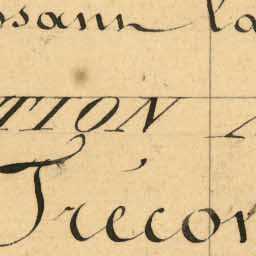 osann la
TION
Trécon